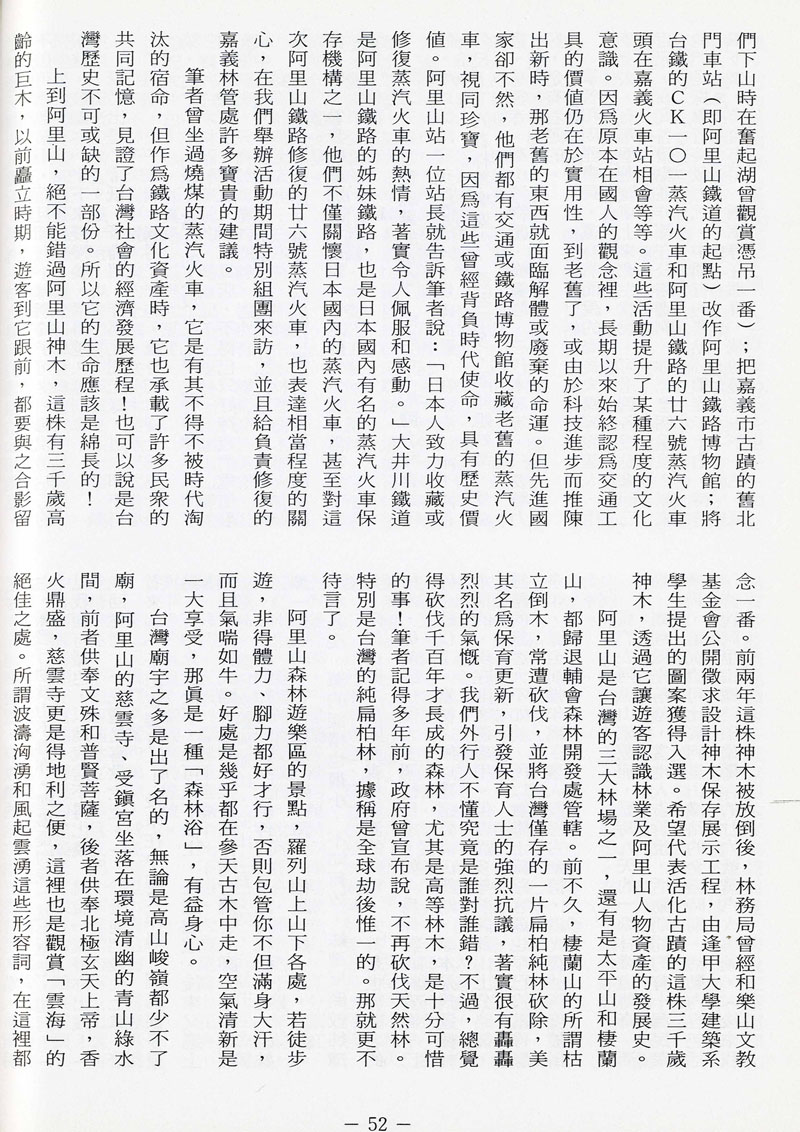 們下山時在奮起湖曾觀賞憑吊一番）；把嘉義市古蹟的舊北
門車站（即阿里山鐵道的起點）改作阿里山鐵路博物館；將
台鐵的ＣＫ一〇一蒸汽火車和阿里山鐵路的廿六號蒸汽火車
頭在嘉義火車站相會等等。這些活動提升了某種程度的文化
意識。因為原本在國人的觀念裡，長期以來始終認為交通工
具的價值仍在於實用性，到老舊了，或由於科技進步而推陳
出新時，那老舊的東西就面臨解體或廢棄的命運。但先進國
家卻不然，他們都有交通或鐵路博物館收藏老舊的蒸汽火
車，視同珍寶，因為這些曾經背負時代使命，具有歷史價
值。阿里山站一位站長就告訴筆者說：「日本人致力收藏或
修復蒸汽火車的熱情，著實令人佩服和感動。」大井川鐵道
是阿里山鐵路的姊妹鐵路，也是日本國內有名的蒸汽火車保
存機構之一，他們不僅關懷日本國內的蒸汽火車，甚至對這
次阿里山鐵路修復的廿六號蒸汽火車，也表達相當程度的關
心，在我們舉辦活動期間特別組團來訪，並且給負責修復的
嘉義林管處許多寶貴的建議。
筆者曾坐過燒煤的蒸汽火車，它是有其不得不被時代淘
汰的宿命，但作為鐵路文化資產時，它也承載了許多民衆的
共同記憶，見證了台灣社會的經濟發展歷程！也可以說是台
灣歷史不可或缺的一部份。所以它的生命應該是綿長的！
上到阿里山，絕不能錯過阿里山神木，這株有三千歲高
齡的巨木，以前矗立時期，遊客到它跟前，都要與之合影留
念一番。前兩年這株神木被放倒後，林務局曾經和樂山文教
基金會公開徵求設計神木保存展示工程，由逢甲大學建築系
學生提出的圖案獲得入選。希望代表活化古蹟的這株三千歲
神木，透過它讓遊客認識林業及阿里山人物資產的發展史。
阿里山是台灣的三大林場之一，還有是太平山和棲蘭
山，都歸退輔會森林開發處管轄。前不久，棲蘭山的所謂枯
立倒木，常遭砍伐，並將台灣僅存的一片扁柏純林砍除，美
其名為保育更新，引發保育人士的強烈抗議，著實很有轟轟
烈烈的氣慨。我們外行人不懂究竟是誰對誰錯？不過，總覺
得砍伐千百年才長成的森林，尤其是高等林木，是十分可惜
的事！筆者記得多年前，政府曾宣布說，不再砍伐天然林。
特別是台灣的純扁柏林，據稱是全球劫後惟一的。那就更不
待言了。
阿里山森林遊樂區的景點，羅列山上山下各處，若徒步
遊，非得體力、腳力都好才行，否則包管你不但滿身大汗，
而且氣喘如牛。好處是幾乎都在參天古木中走，空氣清新是
一大享受，那真是一種「森林浴」，有益身心。
台灣廟宇之多是出了名的，無論是高山峻嶺都少不了
廟，阿里山的慈雲寺、受鎮宮坐落在環境清幽的青山綠水
間，前者供奉文殊和普賢菩薩，後者供奉北極玄天上帝，香
火鼎盛，慈雲寺更是得地利之便，這裡也是觀賞「雲海」的
絕佳之處。所謂波濤洶湧和風起雲湧這些形容詞，在這裡都
— 52 —